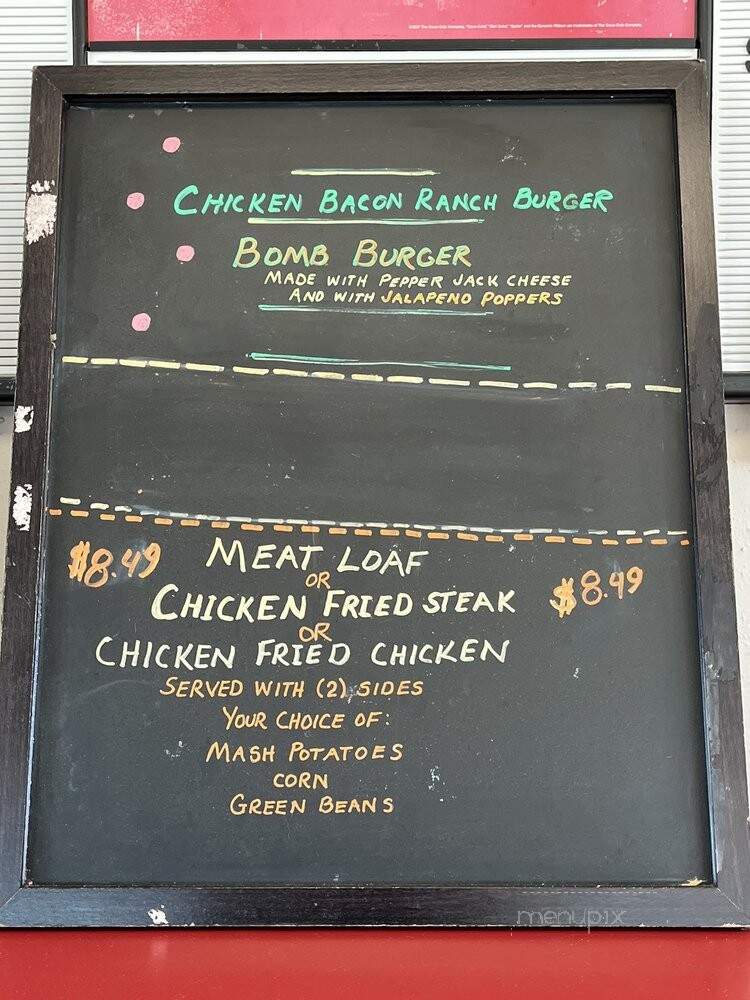 CHICKEN BACON RANCH BURGER
BOMB BURGER
MADE WITH PEPPER JACK CHEESE
AND WITH JALAPENO POPPERS
$8.49
MEAT LOAF
OR
CHICKEN FRIED STEAK
$8.49
OR
CHICKEN FRIED CHICKEN
SERVED WITH (2) SIDES
YOUR CHOICE OF:
MASH POTATOES
CORN
GREEN BEANS
menupix